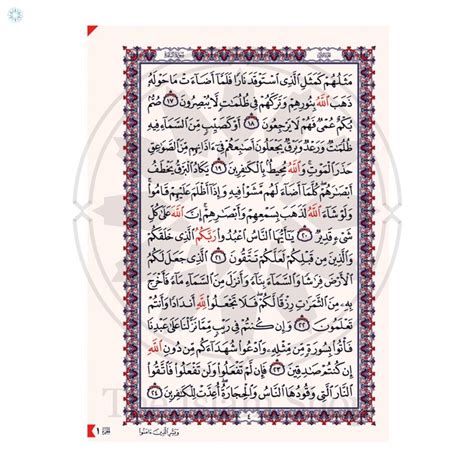 مَثَلُهُمْ كَمَثَلِ ٱلَّذِى ٱسْتَوْقَدَ نَارًا فَلَمَّآ أَضَآءَتْ مَا حَوْلَهُۥ
ذَهَبَ ٱللَّهُ بِنُورِهِمْ وَتَرَكَهُمْ فِى ظُلُمَٰتٍ لَّا يُبْصِرُونَ ١٧ صُمٌّۢ
بُكْمٌ عُمْىٌ فَهُمْ لَا يَرْجِعُونَ ١٨ أَوْ كَصَيِّبٍ مِّنَ ٱلسَّمَآءِ فِيهِ
ظُلُمَٰتٌ وَرَعْدٌ وَبَرْقٌ يَجْعَلُونَ أَصَٰبِعَهُمْ فِىٓ ءَاذَانِهِم مِّنَ ٱلصَّوَٰعِقِ
حَذَرَ ٱلْمَوْتِ ۚ وَٱللَّهُ مُحِيطٌۢ بِٱلْكَٰفِرِينَ ١٩ يَكَادُ ٱلْبَرْقُ يَخْطَفُ
أَبْصَٰرَهُمْ ۖ كُلَّمَآ أَضَآءَ لَهُم مَّشَوْا۟ فِيهِ وَإِذَآ أَظْلَمَ عَلَيْهِمْ قَامُوا۟ ۚ
وَلَوْ شَآءَ ٱللَّهُ لَذَهَبَ بِسَمْعِهِمْ وَأَبْصَٰرِهِمْ ۚ إِنَّ ٱللَّهَ عَلَىٰ كُلِّ
شَىْءٍ قَدِيرٌ ٢٠ يَٰٓأَيُّهَا ٱلنَّاسُ ٱعْبُدُوا۟ رَبَّكُمُ ٱلَّذِى خَلَقَكُمْ
وَٱلَّذِينَ مِن قَبْلِكُمْ لَعَلَّكُمْ تَتَّقُونَ ٢١ ٱلَّذِى جَعَلَ لَكُمُ
ٱلْأَرْضَ فِرَٰشًا وَٱلسَّمَآءَ بِنَآءً وَأَنزَلَ مِنَ ٱلسَّمَآءِ مَآءً فَأَخْرَجَ
بِهِۦ مِنَ ٱلثَّمَرَٰتِ رِزْقًا لَّكُمْ ۖ فَلَا تَجْعَلُوا۟ لِلَّهِ أَندَادًا وَأَنتُمْ
تَعْلَمُونَ ٢٢ وَإِن كُنتُمْ فِى رَيْبٍ مِّمَّا نَزَّلْنَا عَلَىٰ عَبْدِنَا
فَأْتُوا۟ بِسُورَةٍ مِّن مِّثْلِهِۦ وَٱدْعُوا۟ شُهَدَآءَكُم مِّن دُونِ ٱللَّهِ
إِن كُنتُمْ صَٰدِقِينَ ٢٣ فَإِن لَّمْ تَفْعَلُوا۟ وَلَن تَفْعَلُوا۟ فَٱتَّقُوا۟
ٱلنَّارَ ٱلَّتِى وَقُودُهَا ٱلنَّاسُ وَٱلْحِجَارَةُ ۖ أُعِدَّتْ لِلْكَٰفِرِينَ ٢٤
٤
وبشر الذين ءامنوا
١